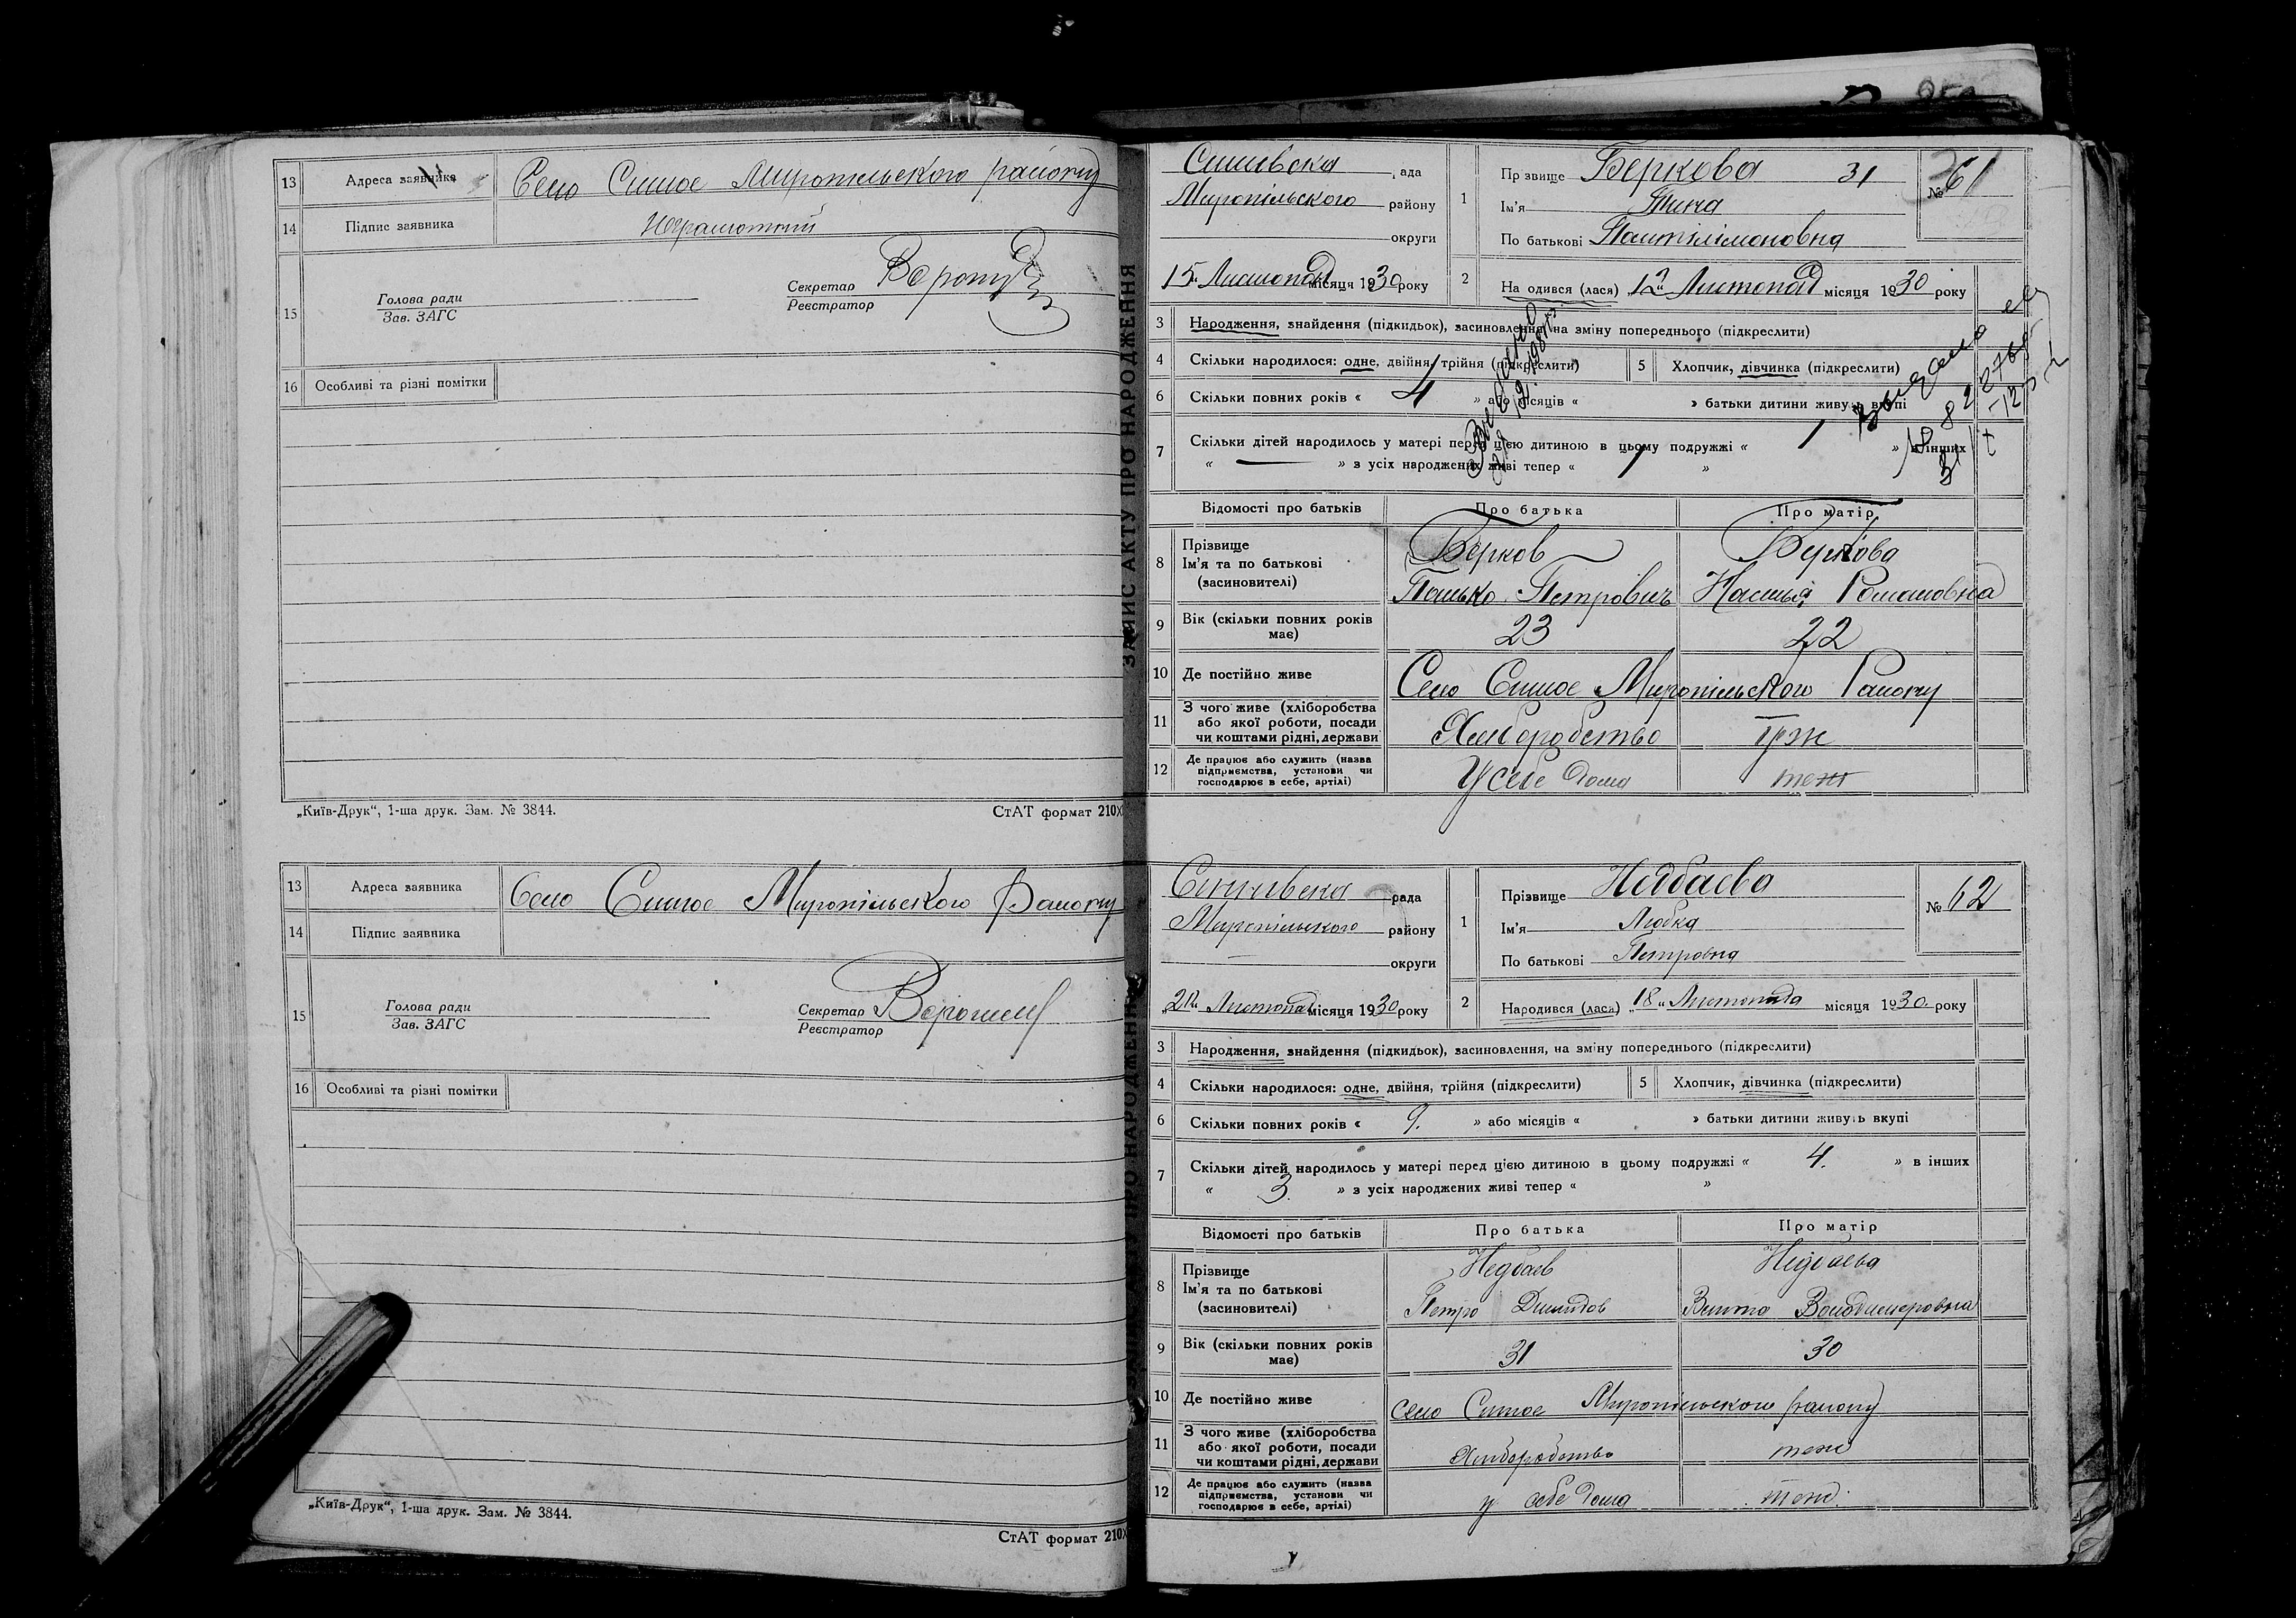 13 Адреса заявника Село Синное Миропільского району
14 Підпис заявника Неграмотний
15 Голова ради
Зав. ЗАГС
Секретар
Реєстратор
16 Особливі та різні помітки
„Київ-Друк“, 1-ша друк. Зам. № 3844.
СтАТ формат 210Х
13 Адреса заявника Село Синное Миропільского району
14 Підпис заявника
15 Голова ради
Зав. ЗАГС
Секретар
Реєстратор
16 Особливі та різні помітки
„Київ-Друк“, 1-ша друк. Зам. № 3844.
СтАТ формат 210Х
ЗАПИС АКТУ ПРО НАРОДЖЕННЯ
ада
Миропільского району
округи
15 Листопад місяця 1930 року
1 Прзвище Беркова 31
Ім'я
По батькові Пантілімоновна
№ 61
2 На одився (лася) „12“ Листопад місяця 1930 року
3 Народження, знайдення (підкидьок), засиновлення, на зміну попереднього (підкреслити)
4 Скільки народилося: одне, двійня, трійня (підкреслити) 5 Хлопчик, дівчинка (підкреслити)
6 Скільки повних років « 4 » або місяців « » батьки дитини живуть вкупі
7 Скільки дітей народилось у матері перед цією дитиною в цьому подружжі « 1 » в інших
« — » з усіх народжених живі тепер « 1 »
Відомості про батьків Про батька Про матір
8 Прізвище Берков Беркова
Ім'я та по батькові Панько Петровичъ Настья Романовна
(засиновителі)
9 Вік (скільки повних років має) 23 22
10 Де постійно живе Село Синное Миропільского Району
11 З чого живе (хліборобства
або якої роботи, посади
чи коштами рідні, держави Хліборобство тж
12 Де працює або служить (назва
підприємства, установи чи
господарює в себе, артілі) У себе дома теж
рада
Миропільського району
округи
„20“ Листопад місяця 1930 року
1 Прізвище Недбаева
Ім'я Любка
По батькові Петровна
№ 62
2 Народився (лася) „18“ Листопада місяця 1930 року
3 Народження, знайдення (підкидьок), засиновлення, на зміну попереднього (підкреслити)
4 Скільки народилося: одне, двійня, трійня (підкреслити) 5 Хлопчик, дівчинка (підкреслити)
6 Скільки повних років « 9. » або місяців « » батьки дитини живуть вкупі
7 Скільки дітей народилось у матері перед цією дитиною в цьому подружжі « 4. » в інших
« 3. » з усіх народжених живі тепер « »
Відомості про батьків Про батька Про матір
8 Прізвище Недбаев Недбаева
Ім'я та по батькові Петро Володимеровна
(засиновителі)
9 Вік (скільки повних років має) 31 30
10 Де постійно живе Село Синное Миропільського району
11 З чого живе (хліборобства
або якої роботи, посади
чи коштами рідні, держави Хліборобство теж
12 Де працює або служить (назва
підприємства, установи чи
господарює в себе, артілі) у себе дома теж.